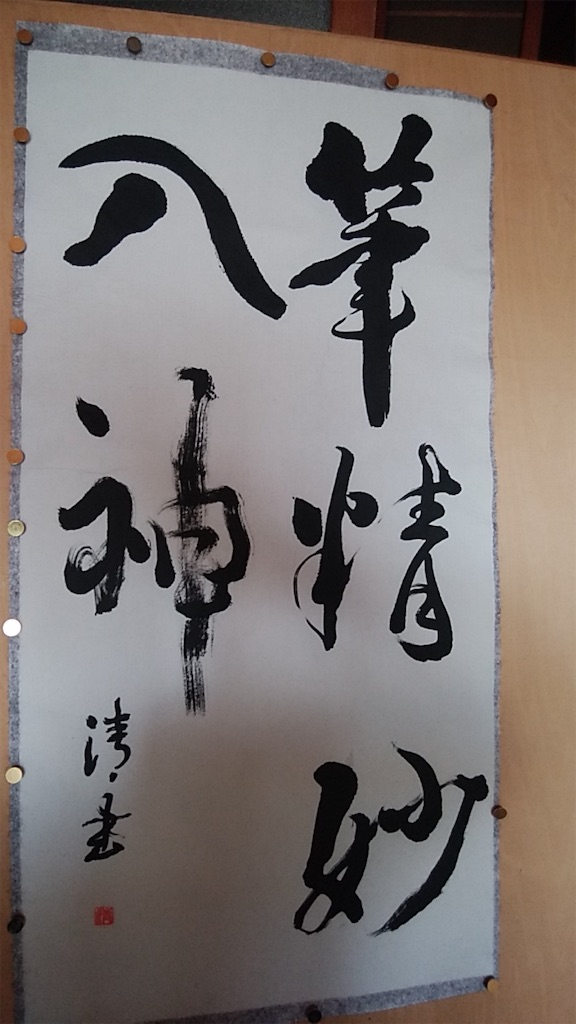 筆精妙
入神
清書